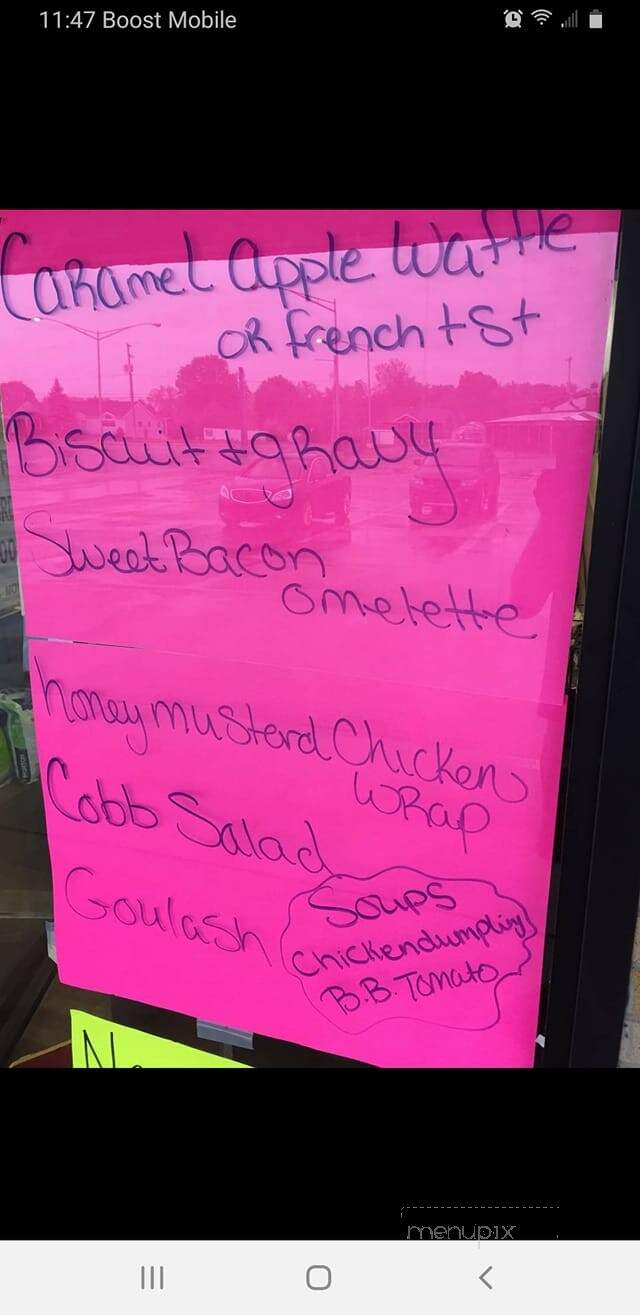 11:47 Boost Mobile
Caramel Apple Waffle
OR french tSt
Biscuit + gravy
Sweet Bacon
omelette
honey musterd Chicken
WRap
Cobb Salad
Goulash
Soups
Chicken dumpling
B.B. Tomato
menupix